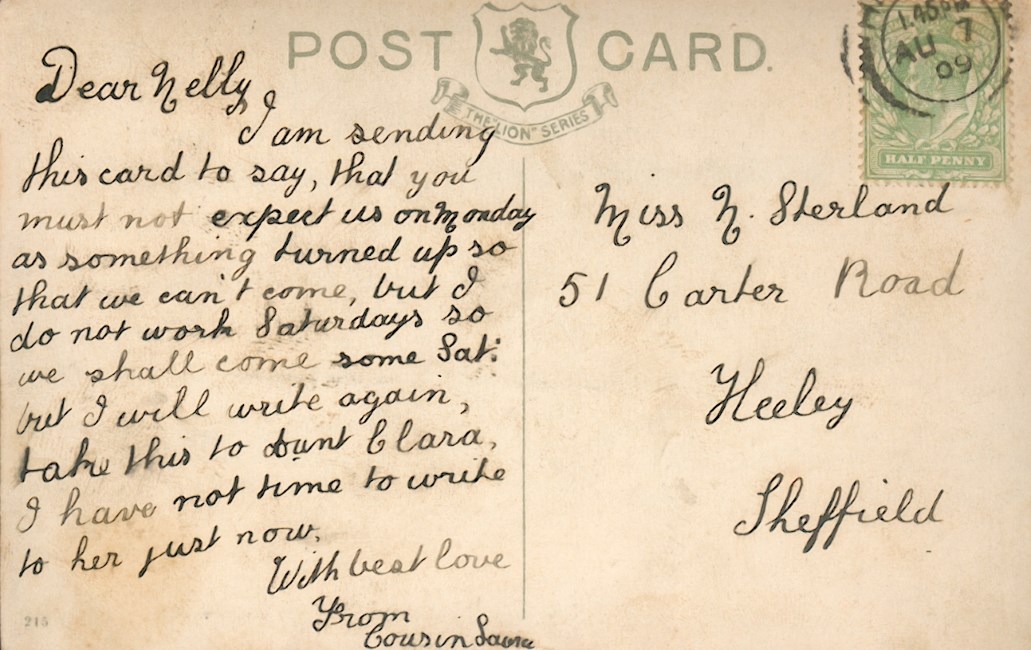 POST CARD.
THE "LION" SERIES
1.45PM
AU 7
09
HALF PENNY
Dear Nelly,
I am sending
this card to say, that you
must not expect us on Monday
as something turned up so
that we can't come, but I
do not work Saturdays so
we shall come some Sat:
but I will write again,
take this to Aunt Clara,
I have not time to write
to her just now.
With best love
From
Cousin Laura
Miss N. Sterland
51 Carter Road
Heeley
Sheffield
215